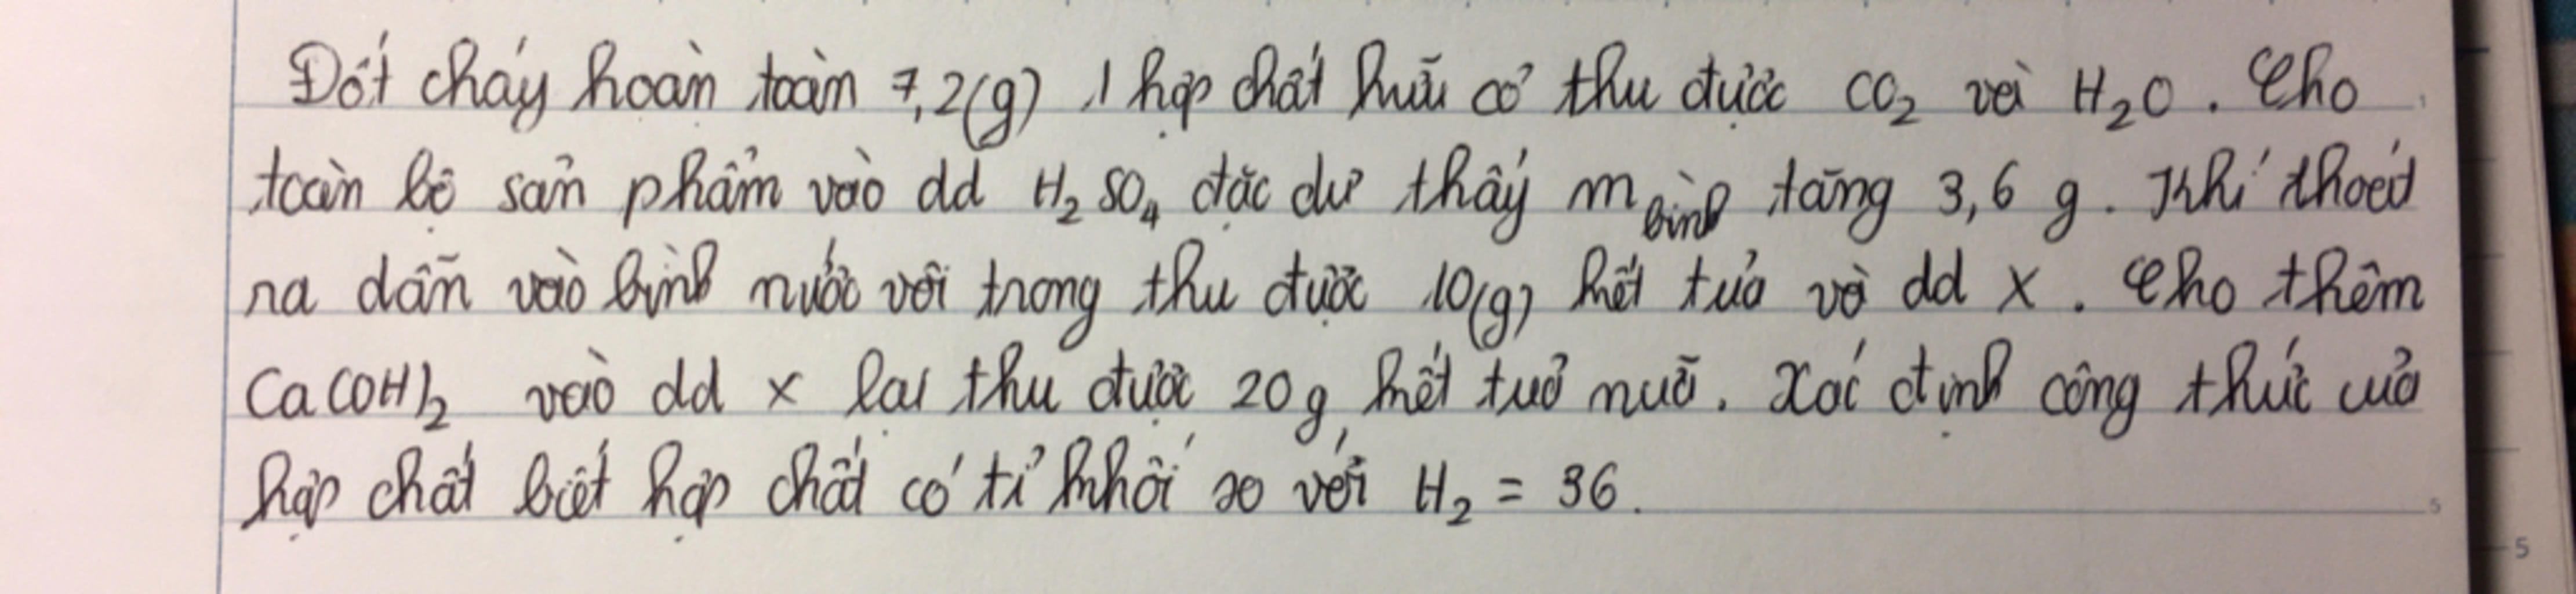 Đốt cháy hoàn toàn 7,2(g) 1 hợp chất hữu cơ thu được CO₂ và H₂O. Cho
toàn bộ sản phẩm vào dd H₂SO₄ đặc dư thấy m bình tăng 3,6 g. Khí thoát
ra dẫn vào bình nước vôi trong thu được 10(g) kết tủa và dd X. Cho thêm
Ca(OH)₂ vào dd X lại thu được 20g kết tuả nưã. Xác định công thức của
hợp chất biết hợp chất có tỉ khối so với H₂ = 36.
5
5